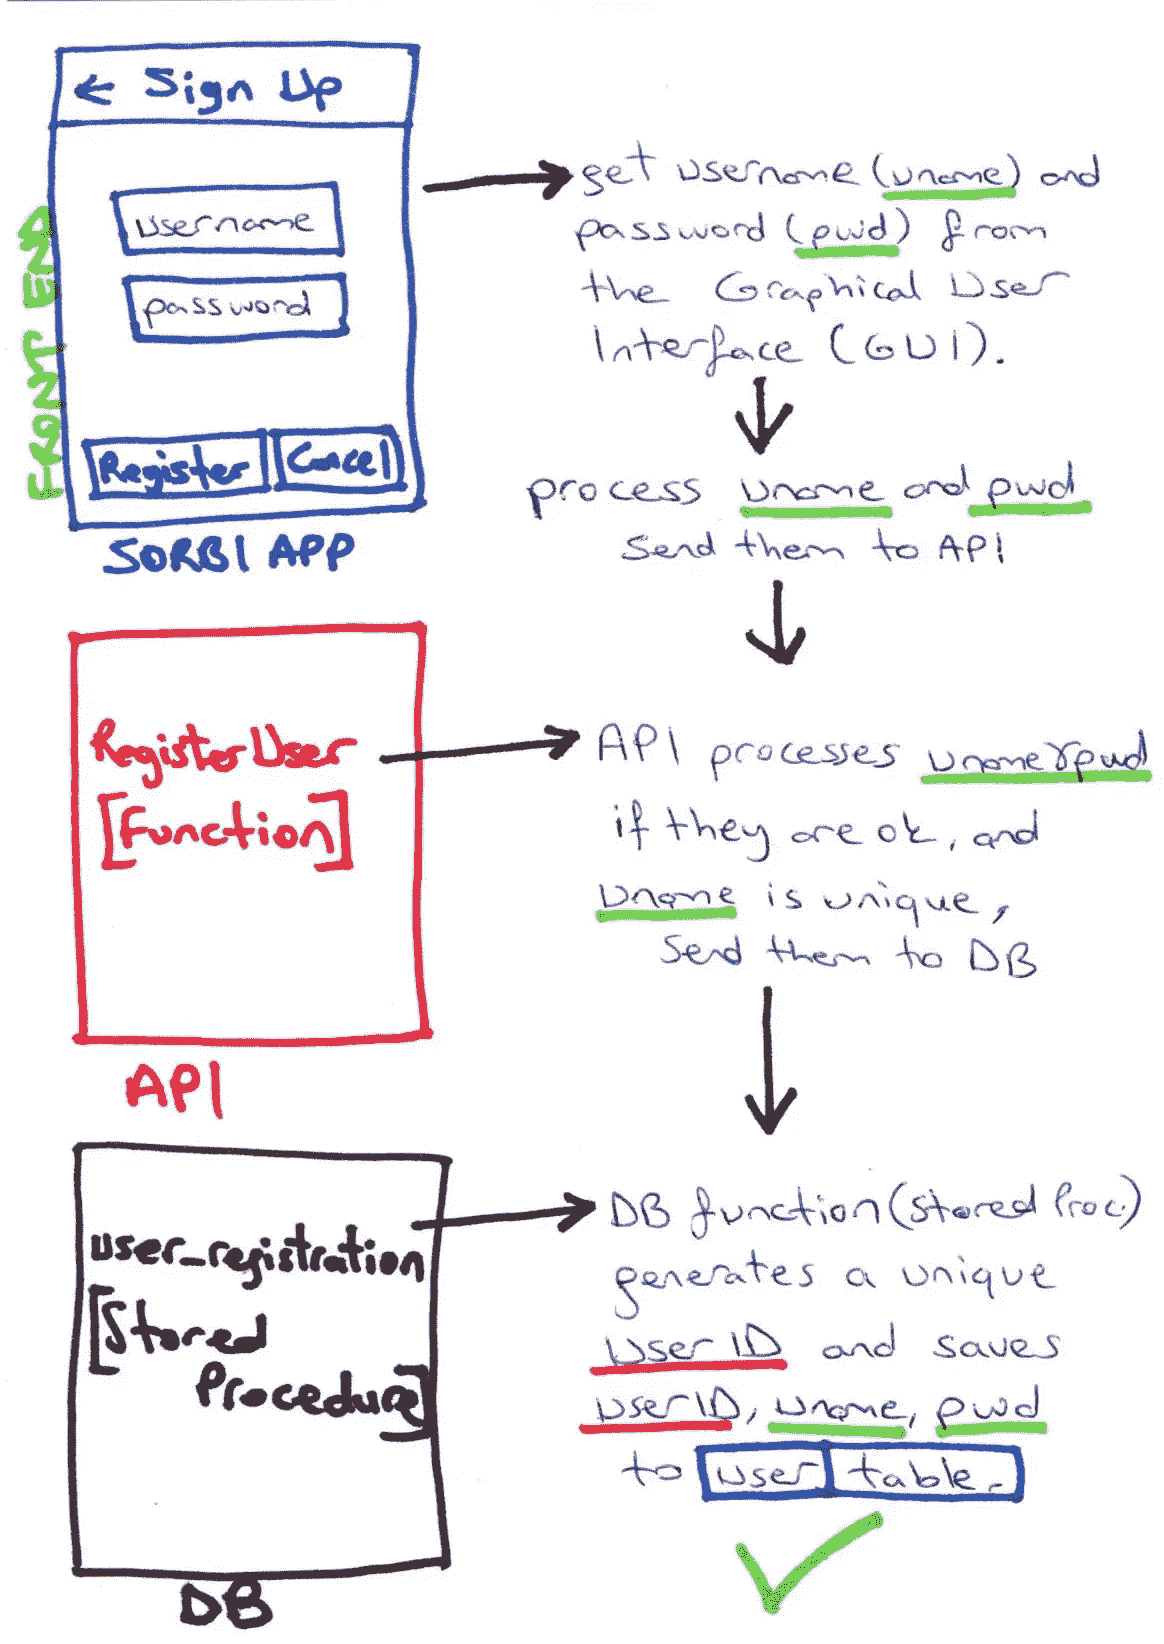 ← Sign Up
username
password
Register
Cancel
FRONT END
SORBI APP
get username (uname) and
password (pwd) from
the Graphical User
Interface (GUI).
process uname and pwd
send them to API
RegisterUser
[Function]
API
API processes uname & pwd
if they are ok, and
uname is unique,
send them to DB
user_registration
[Stored
Procedure]
DB
DB function (Stored Proc.)
generates a unique
UserID and saves
userID, uname, pwd
to user table.